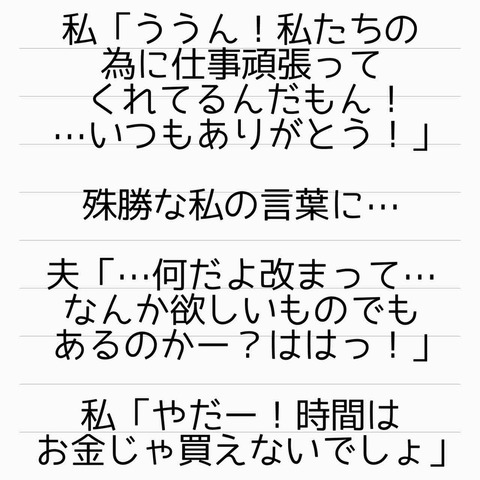 私「ううん！私たちの
為に仕事頑張って
くれてるんだもん！
…いつもありがとう！」
殊勝な私の言葉に…
夫「…何だよ改まって…
なんか欲しいものでも
あるのかー？ははっ！」
私「やだー！時間は
お金じゃ買えないでしょ」